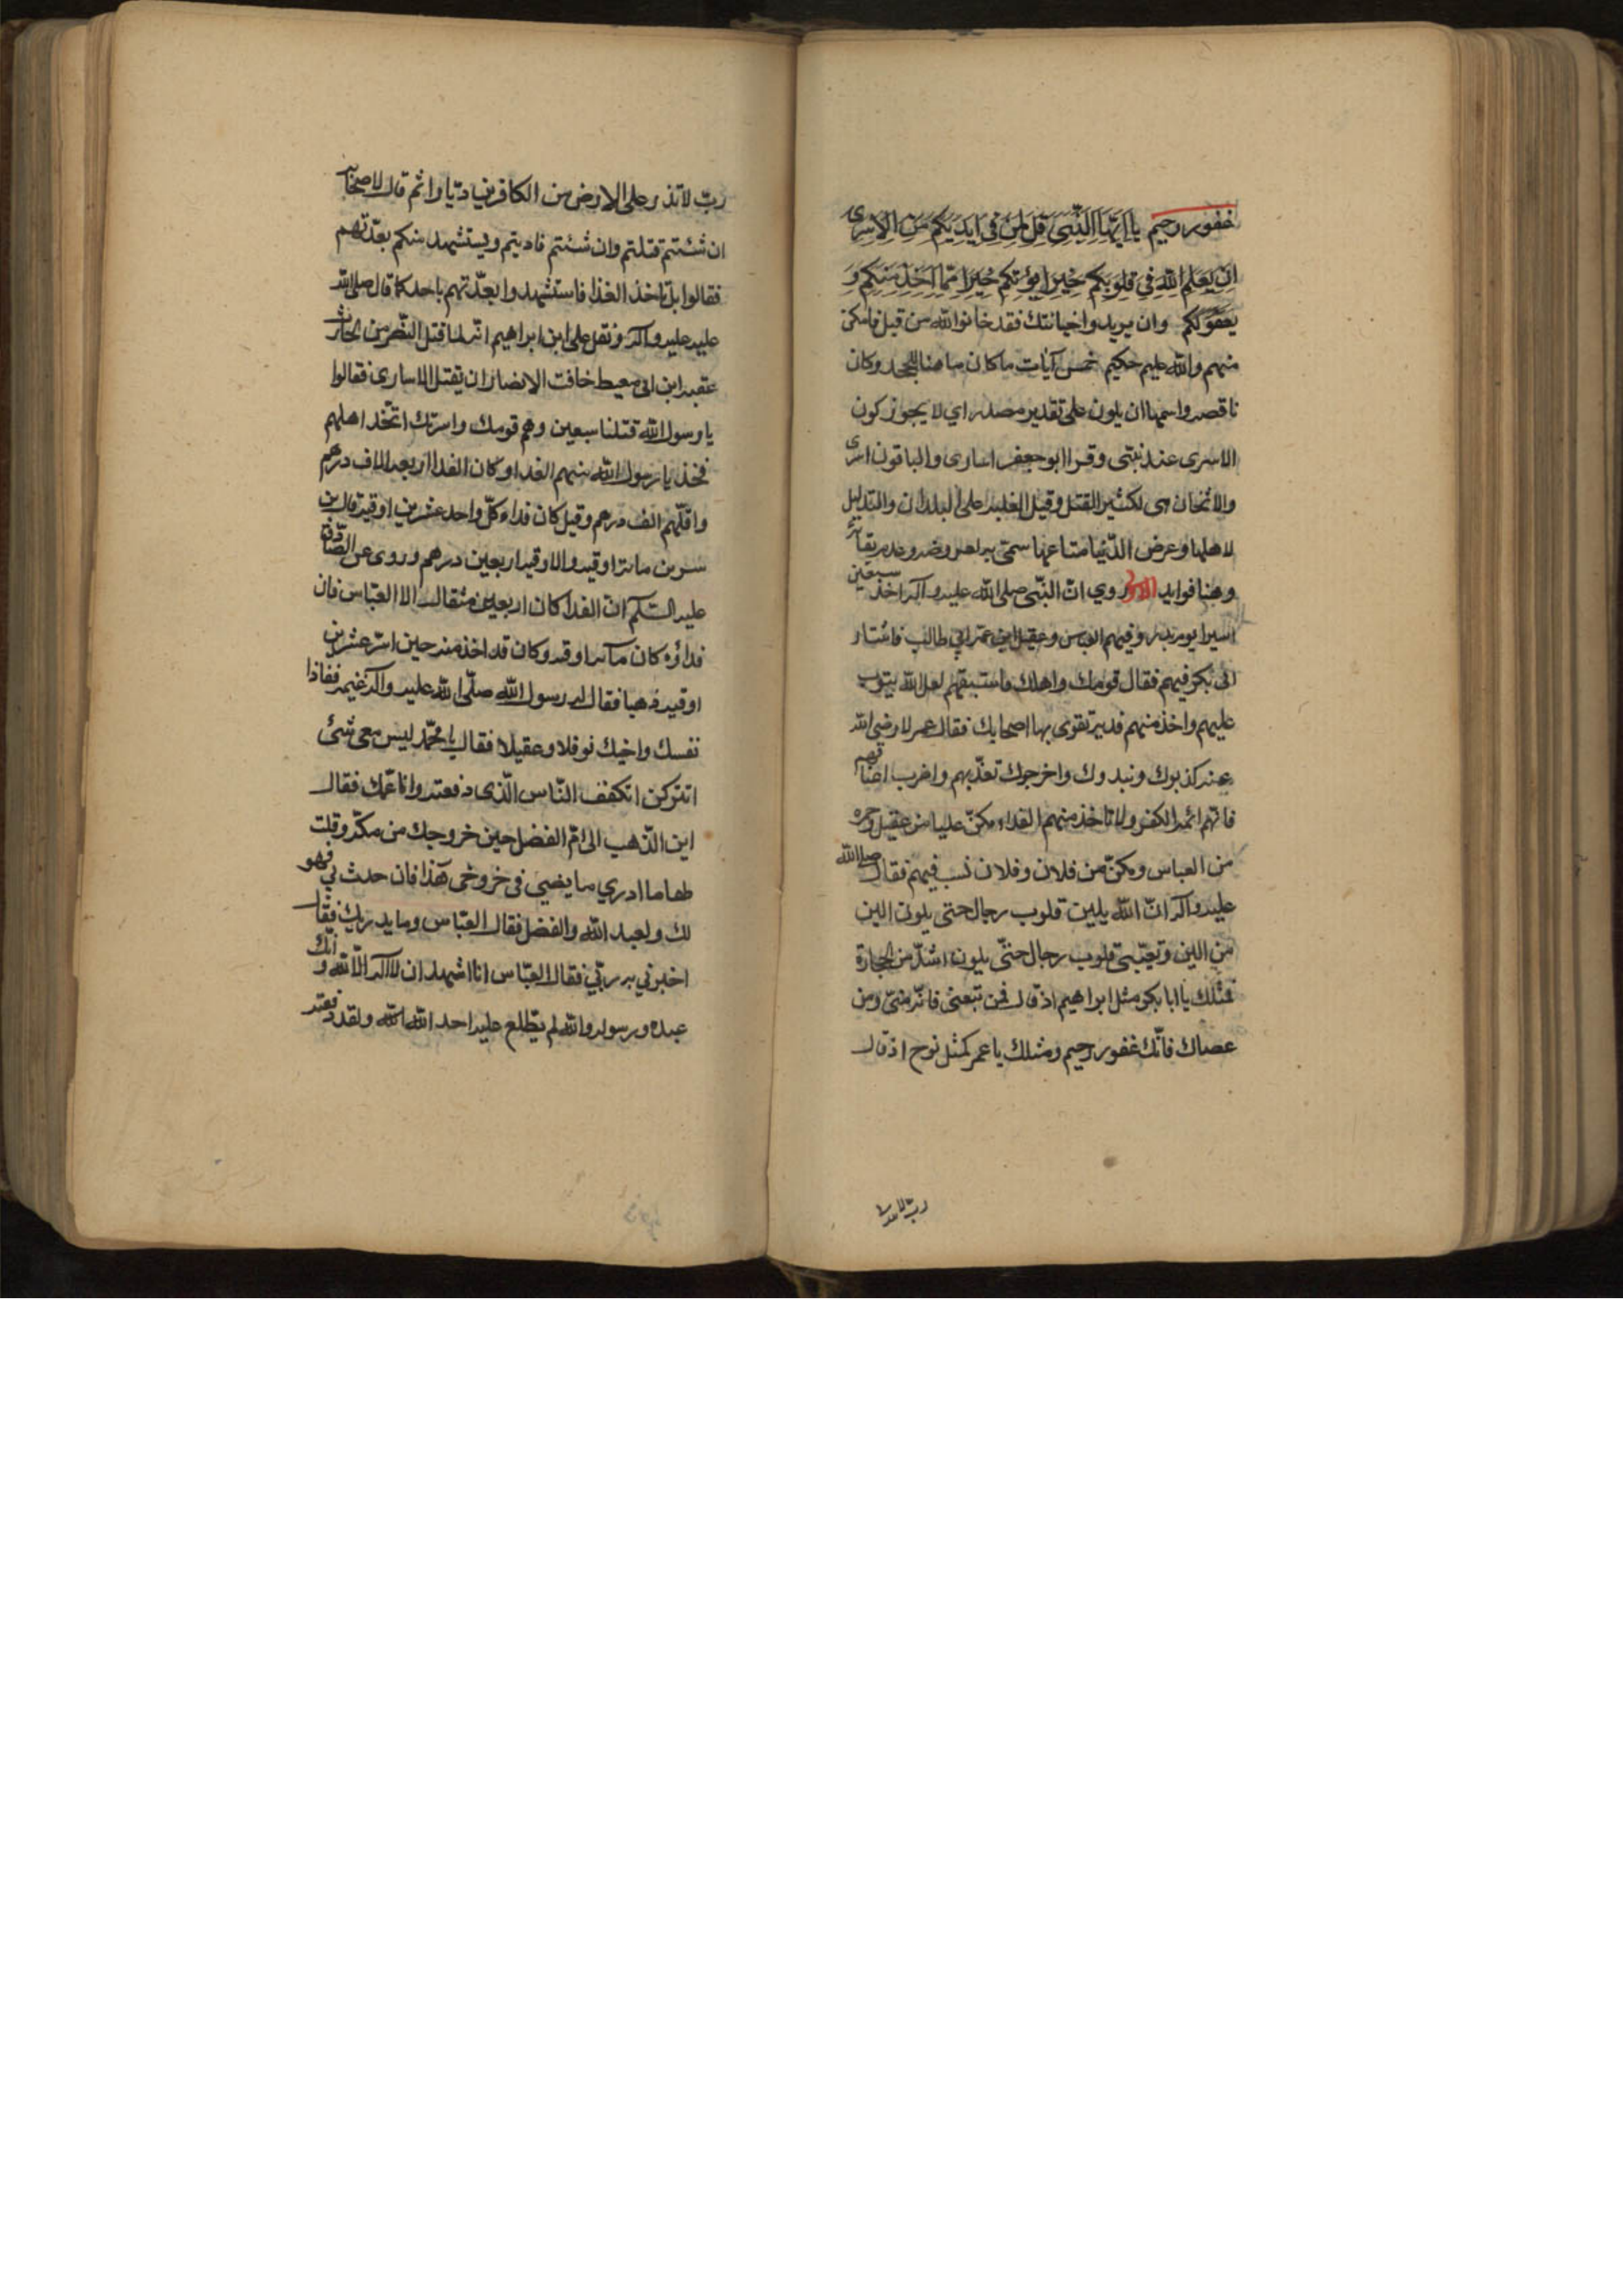 غفور رحيم يا ايها النبي قل لمن في ايديكم من الاسرى
ان يعلم الله في قلوبكم خيرا يؤتكم خيرا مما اخذ منكم و
يغفر لكم وان يريدوا خيانتك فقد خانوا الله من قبل فامكن
منهم والله عليم حكيم خمس آيات ما كان ها هنا للجحد وكان
ناقصه واسمها ان يكون على تقدير مصدر اي لا يجوز كون
الاسرى عند نبتى وقرا ابو جعفر اسارى والباقون اسرى
والاثخان هي لكثير القتل وقيل الغلبه على البلدان والتذليل
لاهلها وعرض الدنيا متاعها سمى به لعروضه وعدم بقائه
وهنا فوايد الاولى روي ان النبي صلى الله عليه وآله اخذ سبعين
اسيرا يوم بدر وفيهم العباس وعقيل ابن عمه ابي طالب فاستشار
ابى بكر فيهم فقال قومك واهلك فاستبقهم لعل الله يتوب
عليهم واخذ منهم فديه تقوى بها اصحابك فقال عمر لا رضي الله
عنه كذبوك ونبدوك واخرجوك تعذبهم واضرب اعناقهم
فانهم ائمة الكفر ولا تاخذ منهم الفداء مكن عليا من عقيل وحمزه
من العباس ومكن من فلان وفلان نسب فيهم فقال صلى الله
عليه وآله ان الله يلين قلوب رجال حتى يكون الين
من اللين وتعسى قلوب رجال حتى يكون اشد من الحجارة
فمثلك يا ابا بكر مثل ابراهيم اذ قال فمن تبعنى فانه منى ومن
عصاك فانك غفور رحيم ومثلك يا عمر كمثل نوح اذ قال
رب لا تذر
رب لا تذر على الارض من الكافرين ديارا ثم قال لاصحابه
ان شئتم قتلتم وان شئتم فاديتم ويستشهد منكم بعدتهم
فقالوا بل ناخذ الفداء فاستشهدوا بعدتهم باحد كما قال صلى الله
عليه عليه وآله ونقل على ابن ابراهيم انه لما قتل النضر من الحارث
عقبه ابن ابى معيط خافت الانصار ان يقتل الاسارى فقالوا
يا رسول الله قتلنا سبعين وهم قومك واسرتك اتخذ اهلهم
فخذ يا رسول الله منهم الفداء وكان الفدا اربعه الاف درهم
واقلهم الف درهم وقيل كان فداء كل واحد عشرين اوقيه قال بن
سيرين مائة اوقيه والاوقيه اربعين درهم وروى عن الصادق
عليه السلام ان الفدا كان اربعين مثقال الا العباس فان
فداؤه كان مائة اوقيه وكان قد اخذ منه حين اسر عشرين
اوقيه ذهبا فقال له رسول الله صلى الله عليه وآله غنيمه ففاذا
نفسك واخيك نوفلا وعقيلا فقال يا محمد ليس معى شئ
اتتركن اتكفف الناس الذى دفعته وانا عمك فقال
اين الذهب الى ام الفضل حين خروجك من مكه وقلت
لها ما ادري ما يضى فى خروجى هذا فان حدث لي فهو
لك ولعبد الله والفضل فقال العباس وما يدريك فقال
اخبرني به ربي فقال العباس انا اشهد ان لا اله الا الله وانك
عبده ورسوله والله لم يطلع عليه احد الا الله ولقد دفعته